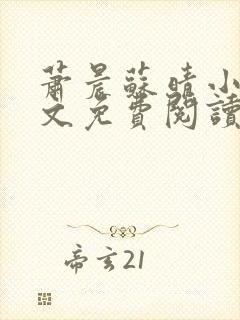 蕭晨蘇晴小
文免費閱讀
帝玄21